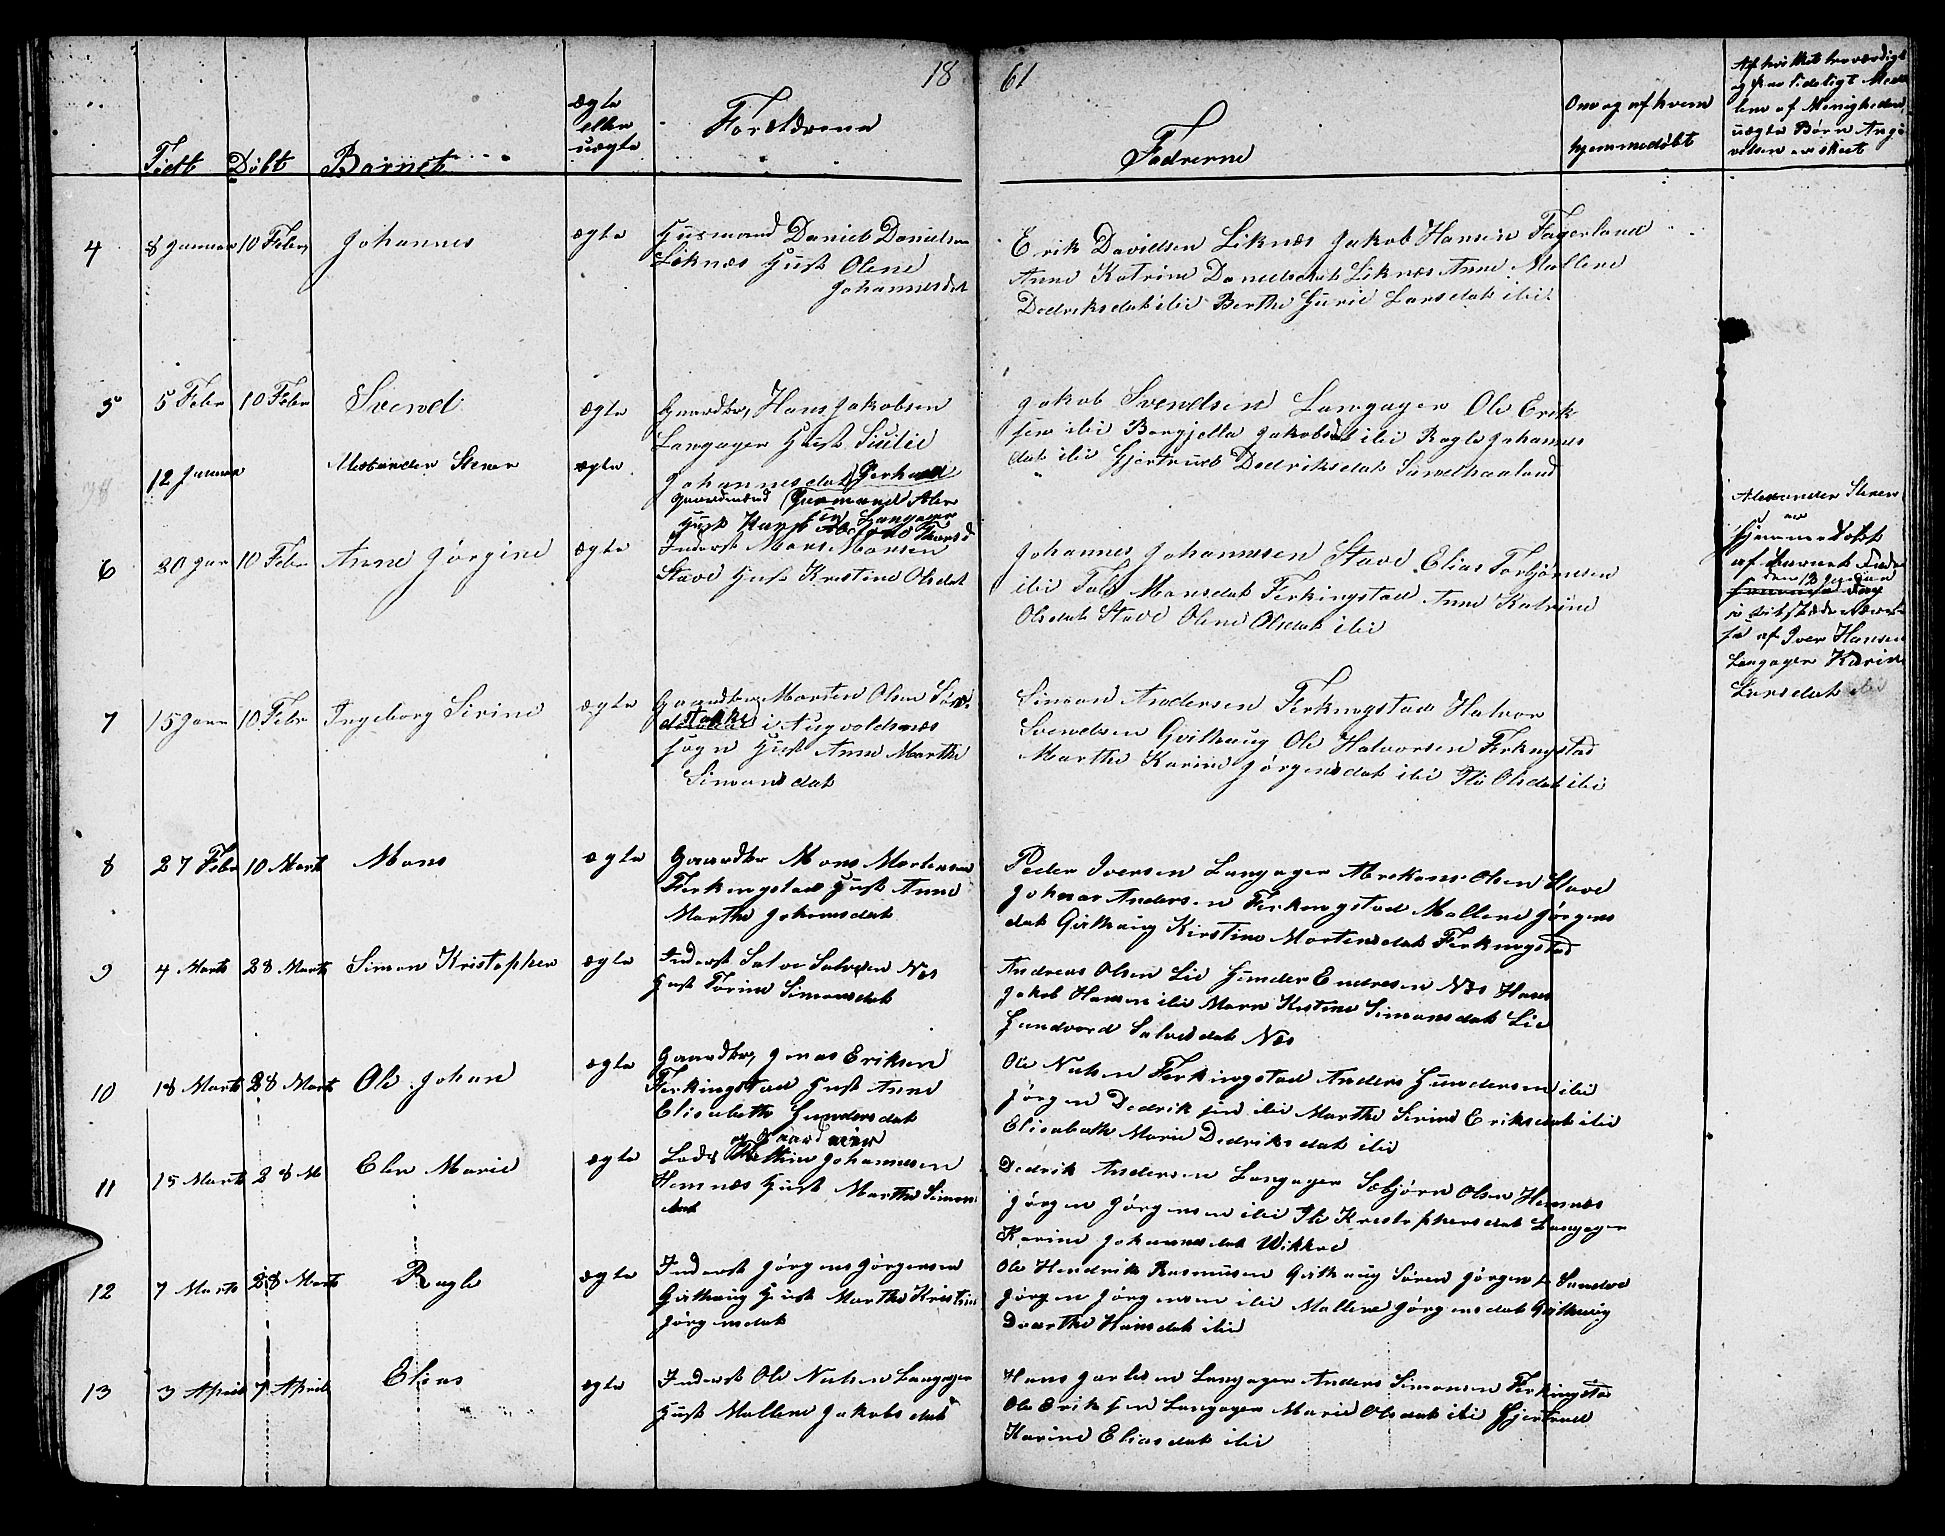 18 61
Født Døbt Barnet ægte eller uægte Forældrene Fadrerne Om og af hvem hjemmedøbt
Af hvilket troværdigt
og paalideligt Med
lem af Menigheden
uægte Børn Angi
velsen er skeet
4 8 Januar 10 Febr Johannes ægte Huusmand Daniel Danielsen
Liknæs Hust Olene
Johannesdat
Erik Davidsen Liknæs Jakob Hansen Fagerland
Anne Katrine Danielsdat Liknæs Anne Mallene
Dedriksdat ibid Berthe Gurie Larsdat ibid
5 5 Febr 10 Febr Svend ægte Gaardbr Hans Jakobsen
Langager Hust Siselie
Johannesdat
Jakob Svendsen Langager Ole Erik
sen ibid Borgjella Jakobsdat ibid Ragle Johannes
dat ibid Gjertrud Dedriksdat Sandhaaland
12 Januar Alexander Stener ægte Gerhard
Gaardmand Huusmand
Langager
Hust
Alexander Stener
er
hjemmedøbt
af Barnets Fader
den 12 Januar
samme Dag
i
af Iver Hansen
Langager Karine
Larsdat ibid
6 20 Jan 10 Febr Anne Jørgine ægte Inderst Mons Monsen
Stave Hust Kristine Olsdat
Johannes Johannesen Stave Elias Torbjørnsen
ibid Monsdat Ferkingstad Anne Katrine
Olsdat Stave Olene Olsdat ibid
7 15 Janr 10 Febr Ingeborg Sirine ægte Gaardbr Morten Olsen
stokke i Augvoldsnæs
sogn Hust Anne Marthe
Simonsdat
Simon Andersen Ferkingstad Halvor
Svendsen Qvilhaug Ole Halvorsen Ferkingstad
Marthe Karine Jørgensdat ibid Olsdat ibid
8 27 Febr 10 Marts Mons ægte Gaardbr Mons Mortensen
Ferkingstad Hust Anne
Marthe Johansdat
Peder Iversen Langager Olsen Stave
Johnar Andersen Ferkingstad Mallene Jørgens
dat Qvilhaug Kirstine Mortensdat Ferkingstad
9 4 Marts 28 Marts Simon Kristopher ægte Inderst Salve Salvesen Nes
Hust Torine Simonsdat
Andreas Olsen Lie Gunder Endresen Nes Hans
Jakob Hansen ibid Maren Kristine Simonsdat Lie
Gundvord Salvesdat Nes
10 18 Marts 28 Marts Ole Johan ægte Gaardbr Jonas Eriksen
Ferkingstad Hust Anne
Elisabeth Gundersdat
Ole Nielsen Ferkingstad Anders Gundersen ibid
Jørgen Dedriksen ibid Marthe Serine Eriksdat ibid
Elisabeth Marie Dedriksdat ibid
11 15 Marts 28 M Elen Marie ægte og Gaardeier
Lods Johannesen
Hemnæs Hust Marthe Simons
dat
Dedrik Andersen Langager Sæbjørn Olsen Hemnæs
Jørgen Jørgensen ibid Kristophersdat Langager
Karine Johannesdat Wikkre
12 7 Marts 28 Marts Ragle ægte Inderst Jørgen Jørgensen
Qvilhaug Hust Marthe Kristine
Jørgensdat
Ole Hendrik Rasmusen Qvilhaug Søren Jørgens Sandve
Jørgen Jørgensen ibid Mallene Jørgensdat Qvilhaug
Dorthe Hansdat ibid
13 3 April 7 April Elias ægte Inderst Ole Nielsen Langager
Hust Mallene Jakobsdat
Hans Larsen Langager Anders Simonsen Ferkingstad
Ole Eriksen Langager Marie Olsdat ibid Gjertrud
Karine Eliasdat ibid